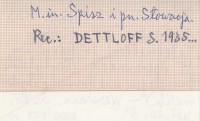 M.in. Spisz i pn. Słowacja.
Rec.: DETTLOFF S. 1935...